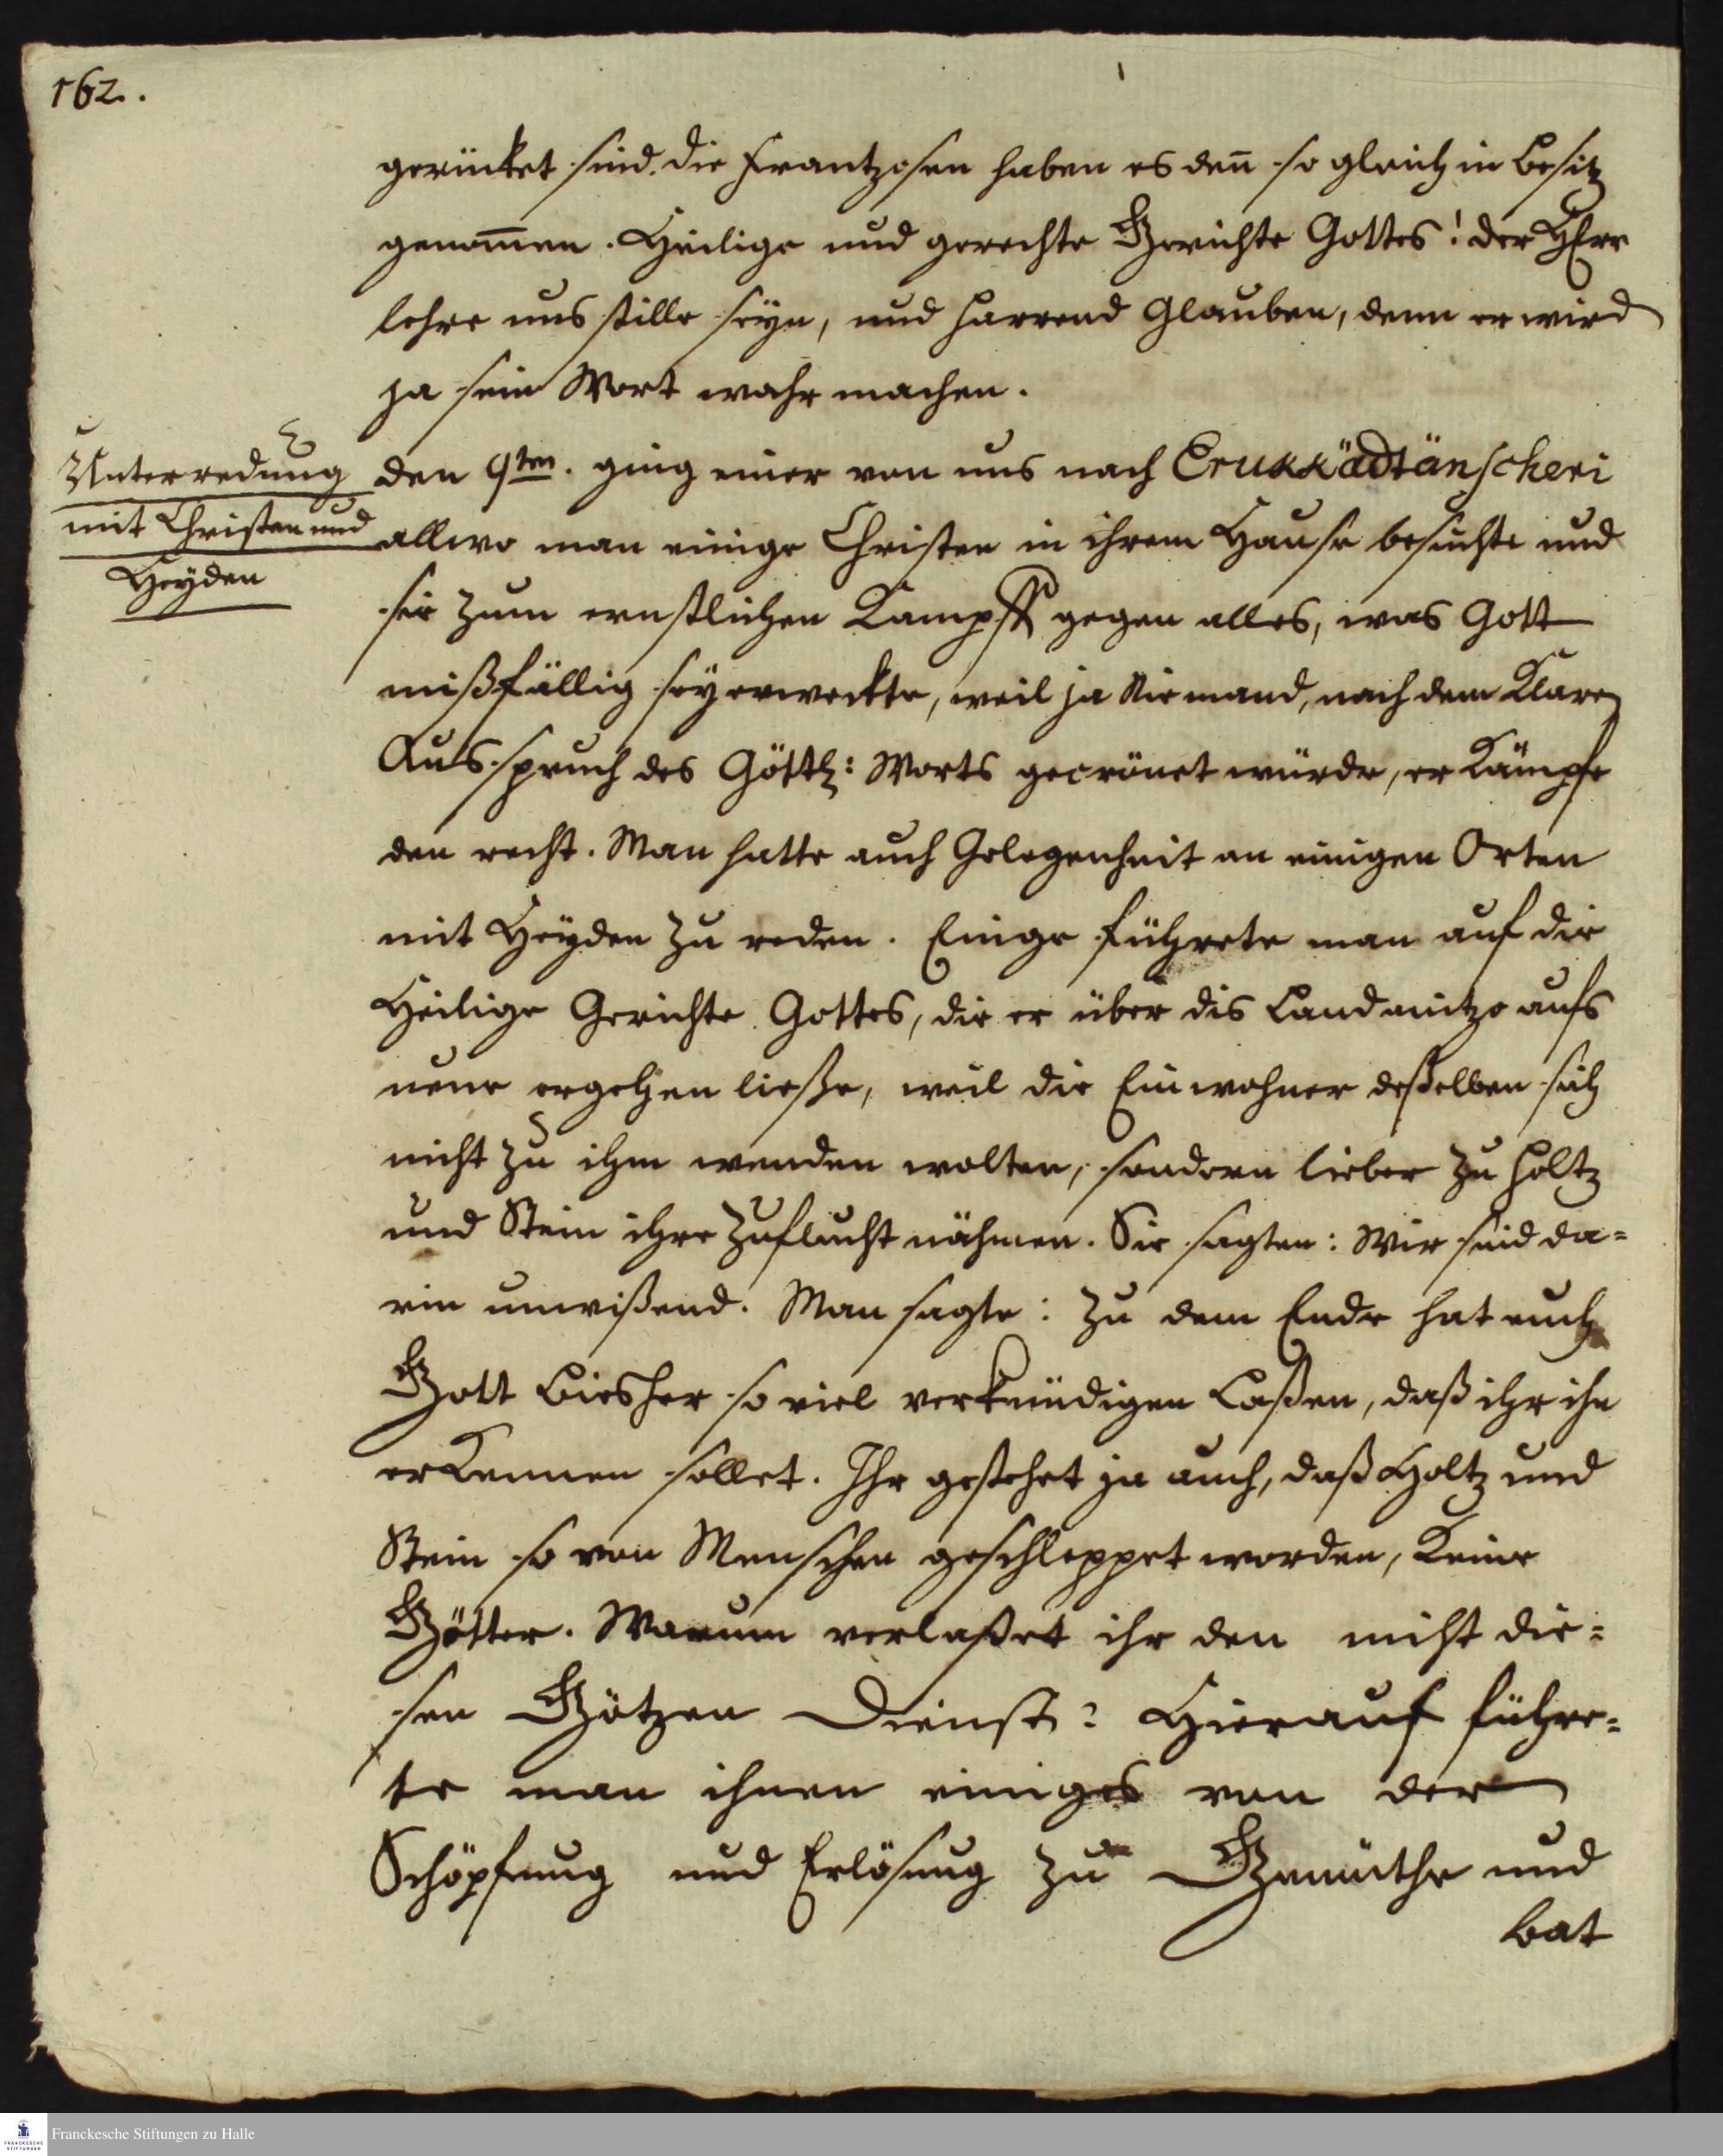 162.
gerücket sind. die Frantzosen haben es deñ so gleich in besitz
genom̃en. Heilige und gerechte Gerichte Gottes! der HErr
lehre uns stille seyn, und harrend Glauben, denn er wird
ja sein Wort wahr machen.
Unterredung
mit Christen und
Heyden
den 9ten. ging einer von uns nach Erukkädtänscheri
allwo man einige Christen in ihrem Hause besuchte und
sie zum ernstlichen Kampff gegen alles, was Gott
mißfällig sey erweckte, weil ja Niemand, nach dem Klaren
Ausspruch des Göttl: Worts gecrönet würde, er Kämpfe
den recht. Man hatte auch Gelegenheit an einigen Orten
mit Heyden zu reden. Einge führete man auf die
Heilige Gerichte Gottes, die er über dis Land anitzo aufs
neue ergehen ließe, weil die Einwohner deßelben sich
nicht zu ihm wenden wolten, sondern lieber zu holtz
und Stein ihre Zuflucht nähmen. Sie sagten: Wir sind da=
rin unwißend. Man sagte: zu dem Ende hat euch
Gott biesher so viel verkündigen laßen, daß ihr ihn
erkennen sollet. Ihr gestehet ja auch, daß Holtz und
Stein so von Menschen geschleppet worden, Keine
Götter. Warum verlaßet ihr den nicht die=
sen Götzen Dienst? Hierauf führe=
te man ihnen einiges von der
Schöpfung und Erlösung zu Gemüthe und
bat
Franckesche Stiftungen zu Halle
FRANCKESCHE
STIFTUNGEN